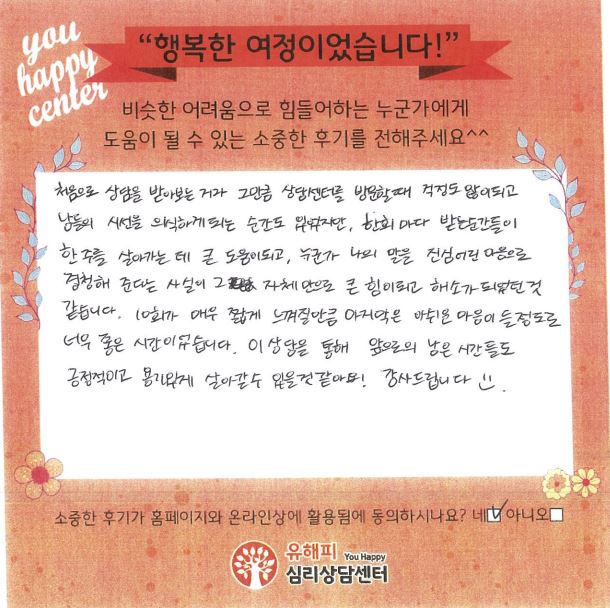 you
happy
center
“행복한 여정이었습니다!”
비슷한 어려움으로 힘들어하는 누군가에게
도움이 될 수 있는 소중한 후기를 전해주세요^^
처음으로 상담을 받아보는 거라 그만큼 상담센터를 방문할때 걱정도 많이되고
남들의 시선을 의식하게 되는 순간도 있었지만, 한회 마다 받는순간들이
한 주를 살아가는 데 큰 도움이되고, 누군가 나의 말을 진심어린 마음으로
경청해 준다는 사실이 그 자체만으로 큰 힘이되고 해소가 되었던 것
같습니다. 10회가 매우 짧게 느껴질만큼 마지막은 아쉬운 마음이 들정도로
너무 좋은 시간이었습니다. 이 상담을 통해 앞으로의 남은 시간들도
긍정적이고 용기있게 살아갈수 있을것 같아요! 감사드립니다
소중한 후기가 홈페이지와 온라인상에 활용됨에 동의하시나요? 네☑ 아니오□
유해피 You Happy
심리상담센터